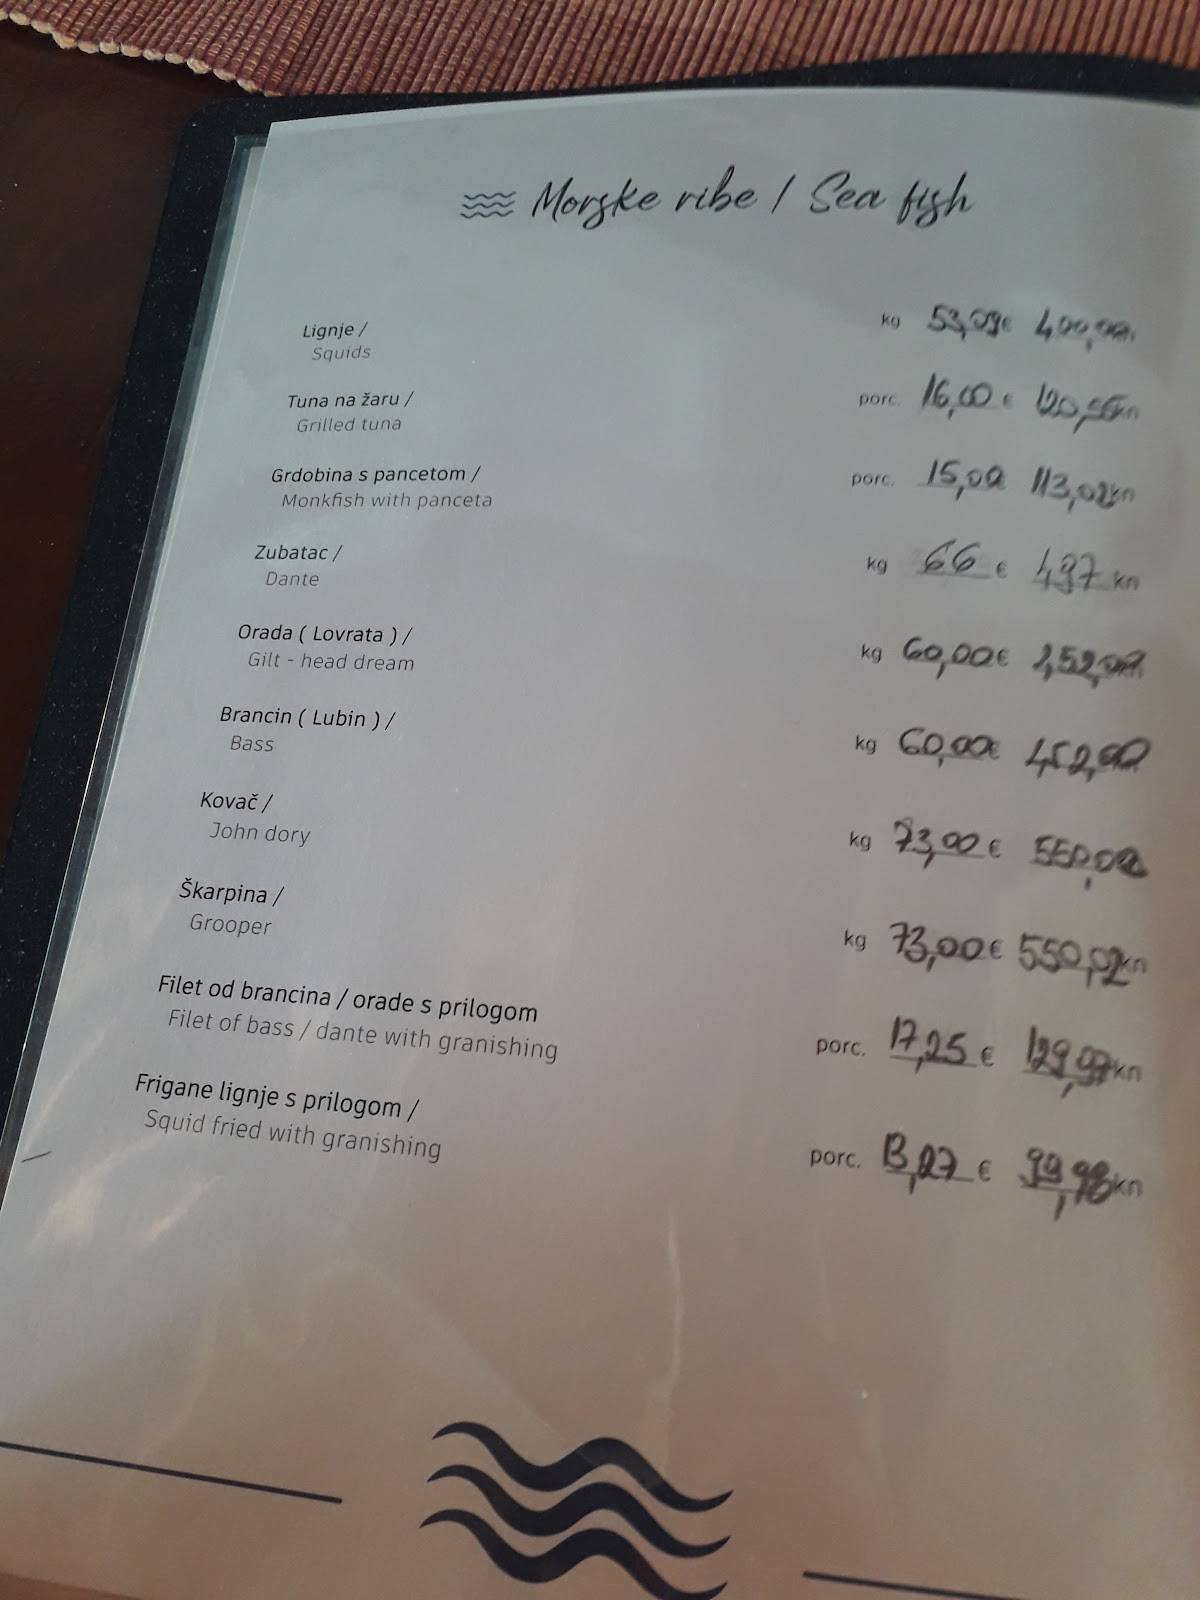 Morske ribe / Sea fish
Lignje / kg 53,09€ 400,00kn
Squids
Tuna na žaru / porc. 16,00 € 120,55kn
Grilled tuna
Grdobina s pancetom / porc. 15,00 113,02kn
Monkfish with panceta
Zubatac / kg 66 € 497 kn
Dante
Orada ( Lovrata ) / kg 60,00€
Gilt - head dream
Brancin ( Lubin ) / kg 60,00€ 452,00
Bass
Kovač / kg 73,00 € 550,02
John dory
Škarpina / kg 73,00€ 550,02kn
Grooper
Filet od brancina / orade s prilogom porc. 17,25 € 129,97kn
Filet of bass / dante with granishing
Frigane lignje s prilogom / porc. 13,27 € 99,98kn
Squid fried with granishing